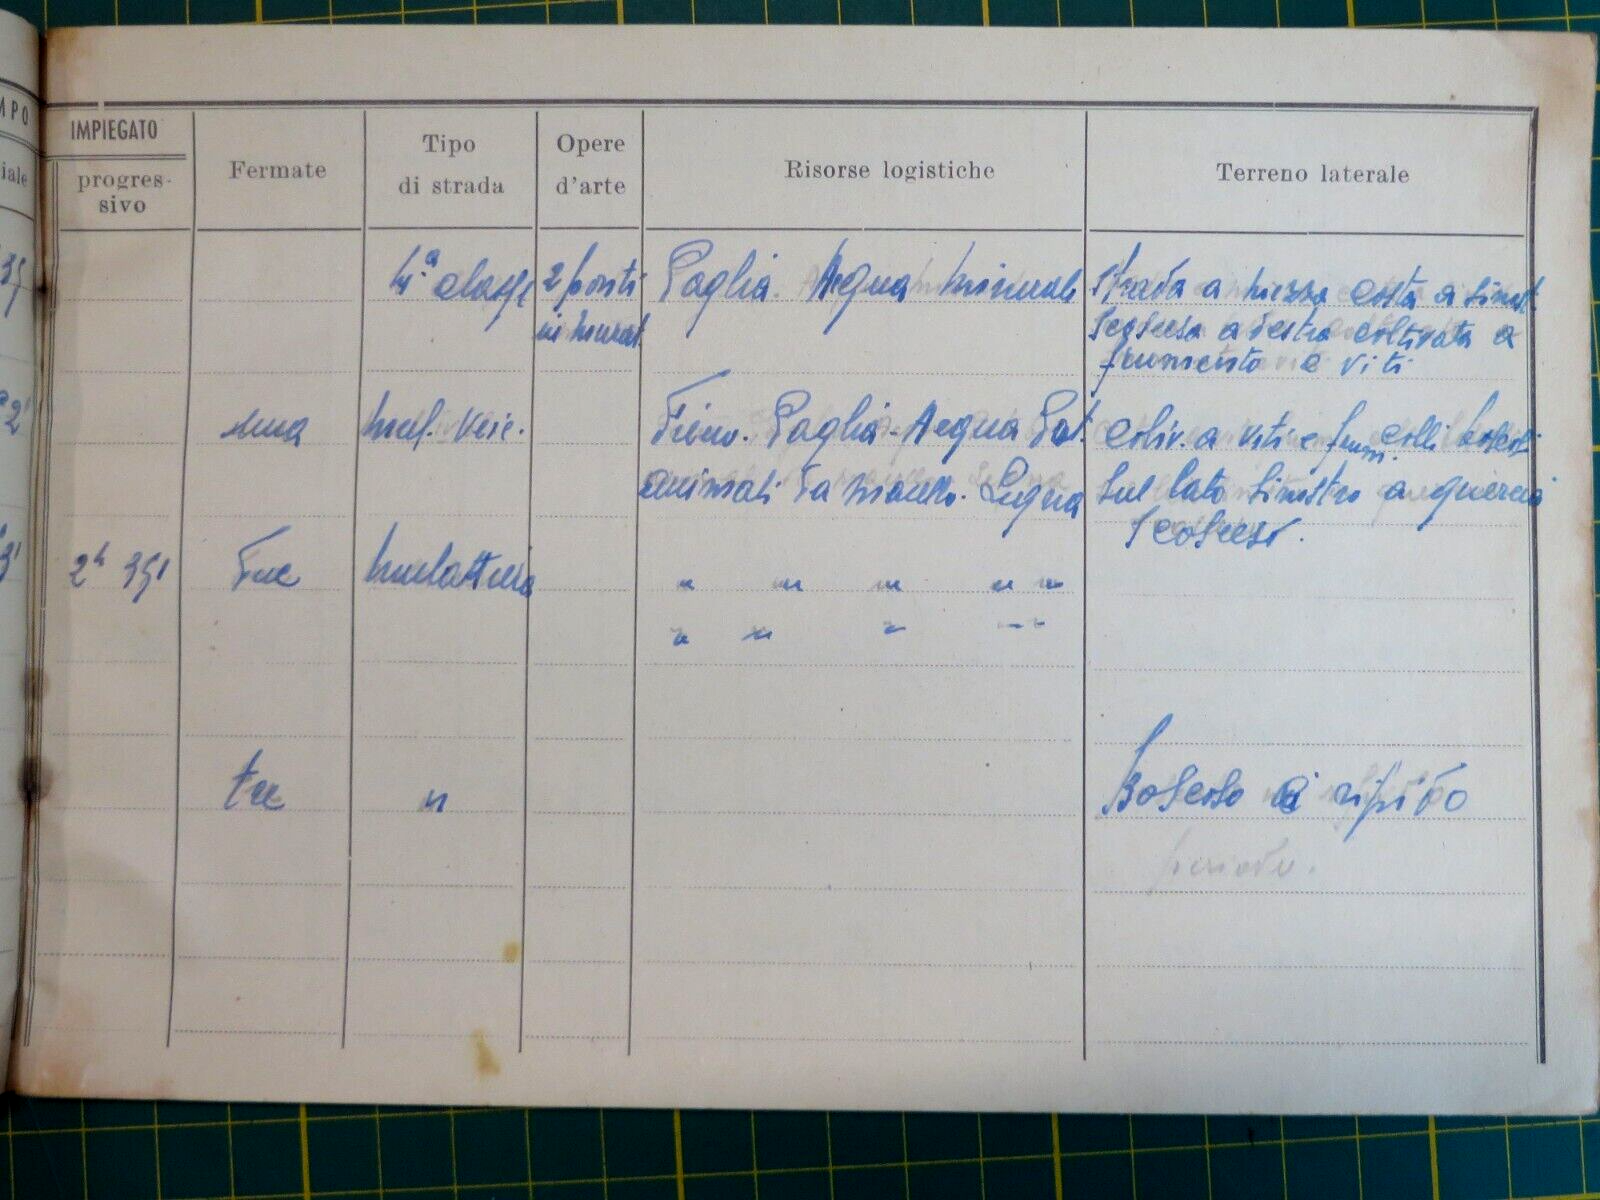 MPO
IMPIEGATO
iale
progres-
sivo
Fermate
Tipo
di strada
Opere
d'arte
Risorse logistiche
Terreno laterale
35'
4ª classe
2 ponti
in murat.
Paglia. Acqua
Strada a mezza costa a sinist.
scoscesa a destra coltivata a
frumento e viti
2'
una
mul. veic.
Fieno. Paglia - Acqua Pot.
animali da macello. Legna
coltiv. a viti e frum. colli boscosi
sul lato sinistro a querce
scoscesi.
3'
2h 35'
Due
mulattiera
" " " " "
" " " "
tre
"
Boscoso e ripido